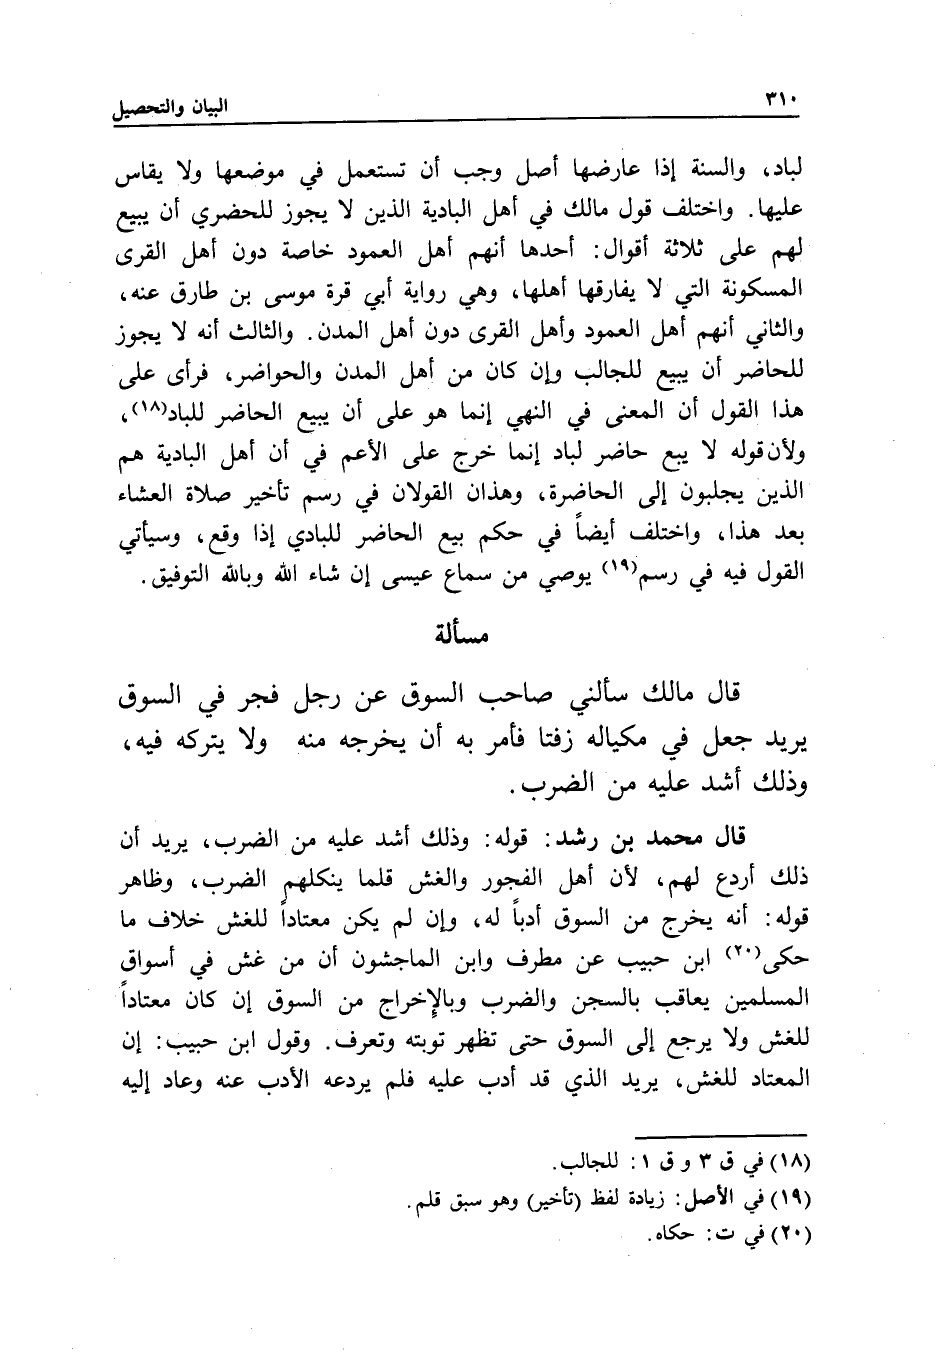 ٣١٠
البيان والتحصيل
لباد، والسنة إذا عارضها أصل وجب أن تستعمل في موضعها ولا يقاس
عليها. واختلف قول مالك في أهل البادية الذين لا يجوز للحضري أن يبيع
لهم على ثلاثة أقوال: أحدها أنهم أهل العمود خاصة دون أهل القرى
المسكونة التي لا يفارقها أهلها، وهي رواية أبي قرة موسى بن طارق عنه،
والثاني أنهم أهل العمود وأهل القرى دون أهل المدن. والثالث أنه لا يجوز
للحاضر أن يبيع للجالب وإن كان من أهل المدن والحواضر، فرأى على
هذا القول أن المعنى في النهي إنما هو على أن يبيع الحاضر للباد(١٨)،
ولأن قوله لا يبع حاضر لباد إنما خرج على الأعم في أن أهل البادية هم
الذين يجلبون إلى الحاضرة، وهذان القولان في رسم تأخير صلاة العشاء
بعد هذا، واختلف أيضاً في حكم بيع الحاضر للبادي إذا وقع، وسيأتي
القول فيه في رسم(١٩) يوصي من سماع عيسى إن شاء الله وبالله التوفيق.
مسألة
قال مالك سألني صاحب السوق عن رجل فجر في السوق
يريد جعل في مكياله زفتا فأمر به أن يخرجه منه ولا يتركه فيه،
وذلك أشد عليه من الضرب.
قال محمد بن رشد: قوله: وذلك أشد عليه من الضرب، يريد أن
ذلك أردع لهم، لأن أهل الفجور والغش قلما ينكلهم الضرب، وظاهر
قوله: أنه يخرج من السوق أدباً له، وإن لم يكن معتاداً للغش خلاف ما
حكى(٢٠) ابن حبيب عن مطرف وابن الماجشون أن من غش في أسواق
المسلمين يعاقب بالسجن والضرب وبالإخراج من السوق إن كان معتاداً
للغش ولا يرجع إلى السوق حتى تظهر توبته وتعرف. وقول ابن حبيب: إن
المعتاد للغش، يريد الذي قد أدب عليه فلم يردعه الأدب عنه وعاد إليه
(١٨) في ق ٣ و ق ١: للجالب.
(١٩) في الأصل: زيادة لفظ (تأخير) وهو سبق قلم.
(٢٠) في ت: حكاه.